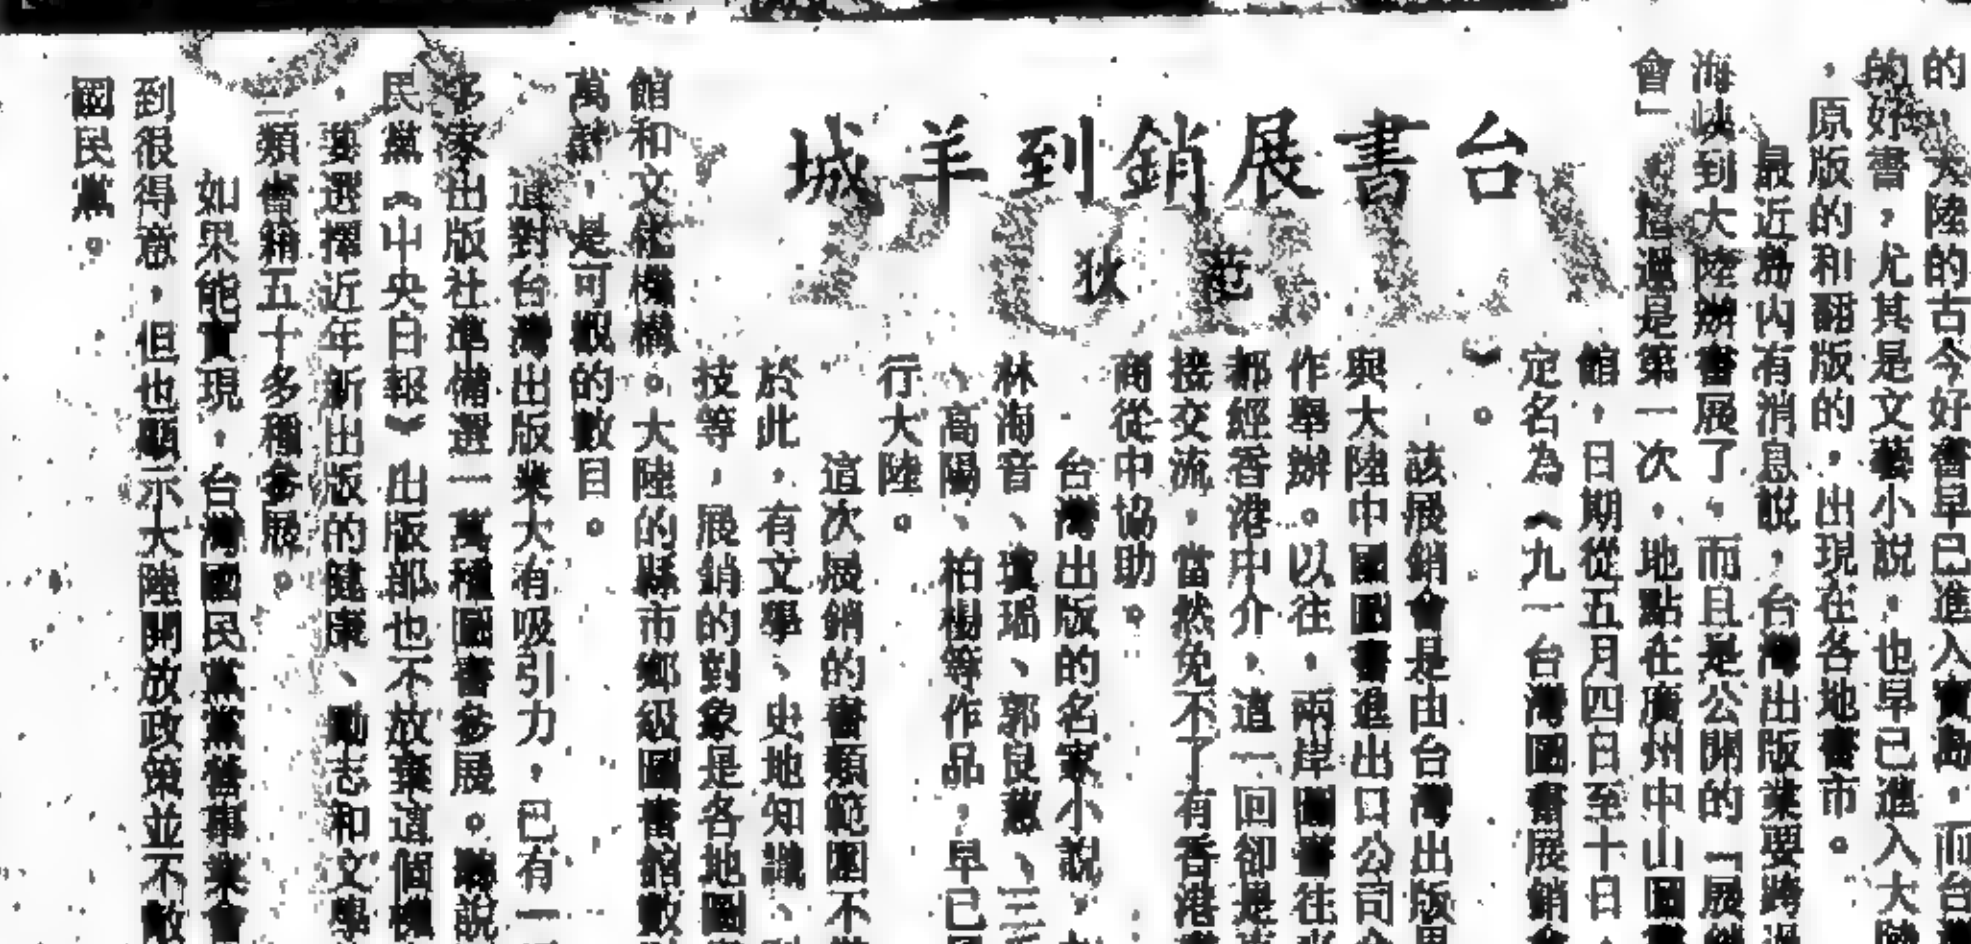 台書展銷到羊城
范 狄
的,大陸的古今好書早已進入寶島,而台
的好書,尤其是文藝小說,也早已進入大陸
,原版的和翻版的,出現在各地書市。
最近為內有消息說,台灣出版業要跨過
海峽到大陸辦書展了,而且是公開的「展銷
會」,這還是第一次,地點在廣州中山圖
館,日期從五月四日至十日,
定名為︽九一台灣圖書展銷會
︾。
該展銷會是由台灣出版界
與大陸中國圖書進出口公司合
作舉辦。以往,兩岸圖書往來
都經香港中介,這一回卻是直
接交流,當然免不了有香港書
商從中協助。
台灣出版的名家小說,
林海音、瓊瑤、郭良蕙、三
、高陽、柏楊等作品,早已風
行大陸。
這次展銷的書類範圍不
於此,有文學、史地知識、
技等,展銷的對象是各地圖
館和文化機構。大陸的縣市鄉級圖書館數
萬計,是可觀的數目。
這對台灣出版業大有吸引力,已有一
家出版社準備選一萬種圖書參展。聽說
民黨︽中央日報︾出版部也不放棄這個機
,要選擇近年新出版的健康、勵志和文學
類書籍五十多種參展。
如果能實現,台灣國民黨黨營事業會
到很得意,但也顯示大陸開放政策並不敵
國民黨。